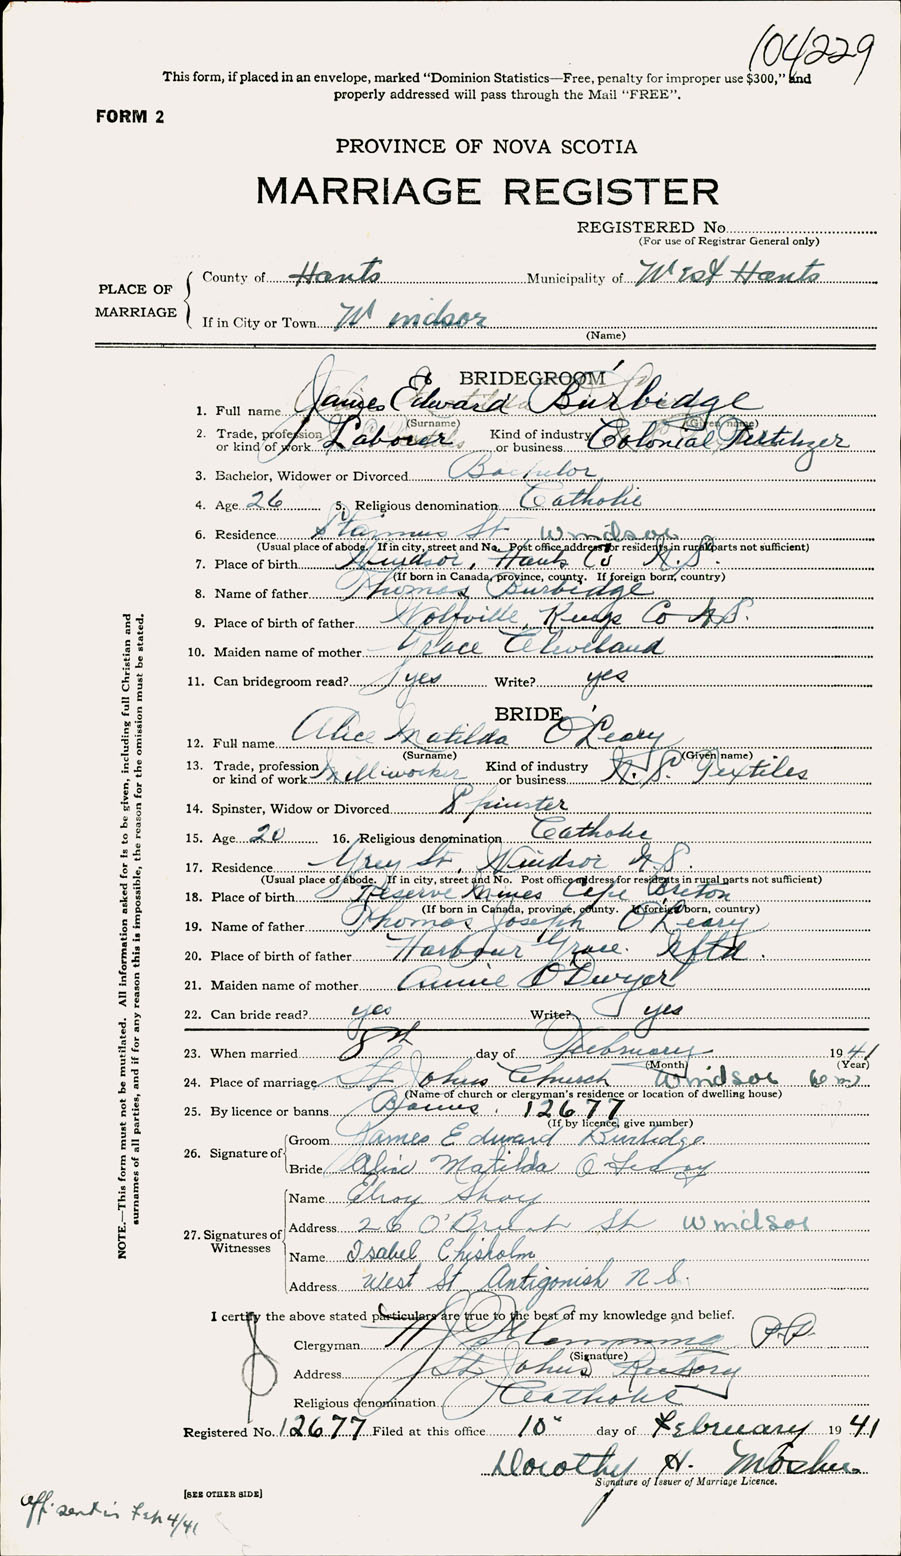 104229
This form, if placed in an envelope, marked "Dominion Statistics—Free, penalty for improper use $300," and
properly addressed will pass through the Mail "FREE".
FORM 2
PROVINCE OF NOVA SCOTIA
MARRIAGE REGISTER
REGISTERED No.
(For use of Registrar General only)
PLACE OF MARRIAGE
County of Hants Municipality of West Hants
If in City or Town Windsor
(Name)
BRIDEGROOM
1. Full name James Edward Burbidge
(Surname) (Given name)
2. Trade, profession or kind of work Labourer Kind of industry or business Colonial Fertilizer
3. Bachelor, Widower or Divorced Bachelor
4. Age 26 5. Religious denomination Catholic
6. Residence Stannus St Windsor
(Usual place of abode. If in city, street and No. Post office address for residents in rural parts not sufficient)
7. Place of birth Windsor, Hants Co N.S.
(If born in Canada, province, county. If foreign born, country)
8. Name of father Thomas Burbidge
9. Place of birth of father Wolfville, Kings Co N.S.
10. Maiden name of mother Grace Cleveland
11. Can bridegroom read? yes Write? yes
BRIDE
12. Full name Alice Matilda O'Leary
(Surname) (Given name)
13. Trade, profession or kind of work Millworker Kind of industry or business N.S. Textiles
14. Spinster, Widow or Divorced Spinster
15. Age 20 16. Religious denomination Catholic
17. Residence Grey St, Windsor N.S.
(Usual place of abode. If in city, street and No. Post office address for residents in rural parts not sufficient)
18. Place of birth Reserve Mines Cape Breton
(If born in Canada, province, county. If foreign born, country)
19. Name of father Thomas Joseph O'Leary
20. Place of birth of father Harbour Grace. Nfld.
21. Maiden name of mother Annie O'Dwyer
22. Can bride read? yes Write? yes
23. When married 8th day of February 1941
(Month) (Year)
24. Place of marriage St Johns Church Windsor
(Name of church or clergyman's residence or location of dwelling house)
25. By licence or banns Banns. 12677
(If by licence, give number)
26. Signature of
Groom James Edward Burbidge
Bride Alice Matilda O'Leary
27. Signatures of Witnesses
Name Elroy Shay
Address 26 O'Brien St Windsor
Name Isabel Chisholm
Address West St Antigonish N.S.
I certify the above stated particulars are true to the best of my knowledge and belief.
Clergyman P.P.
(Signature)
Address St Johns Rectory
Religious denomination Catholic
Registered No. 12677 Filed at this office 10" day of February 1941
Dorothy H. Mosher
Signature of Issuer of Marriage Licence.
[SEE OTHER SIDE]
aff. sent in Feb 4/41
NOTE.—This form must not be mutilated. All information asked for is to be given, including full Christian and
surnames of all parties, and if for any reason this is impossible, the reason for the omission must be stated.